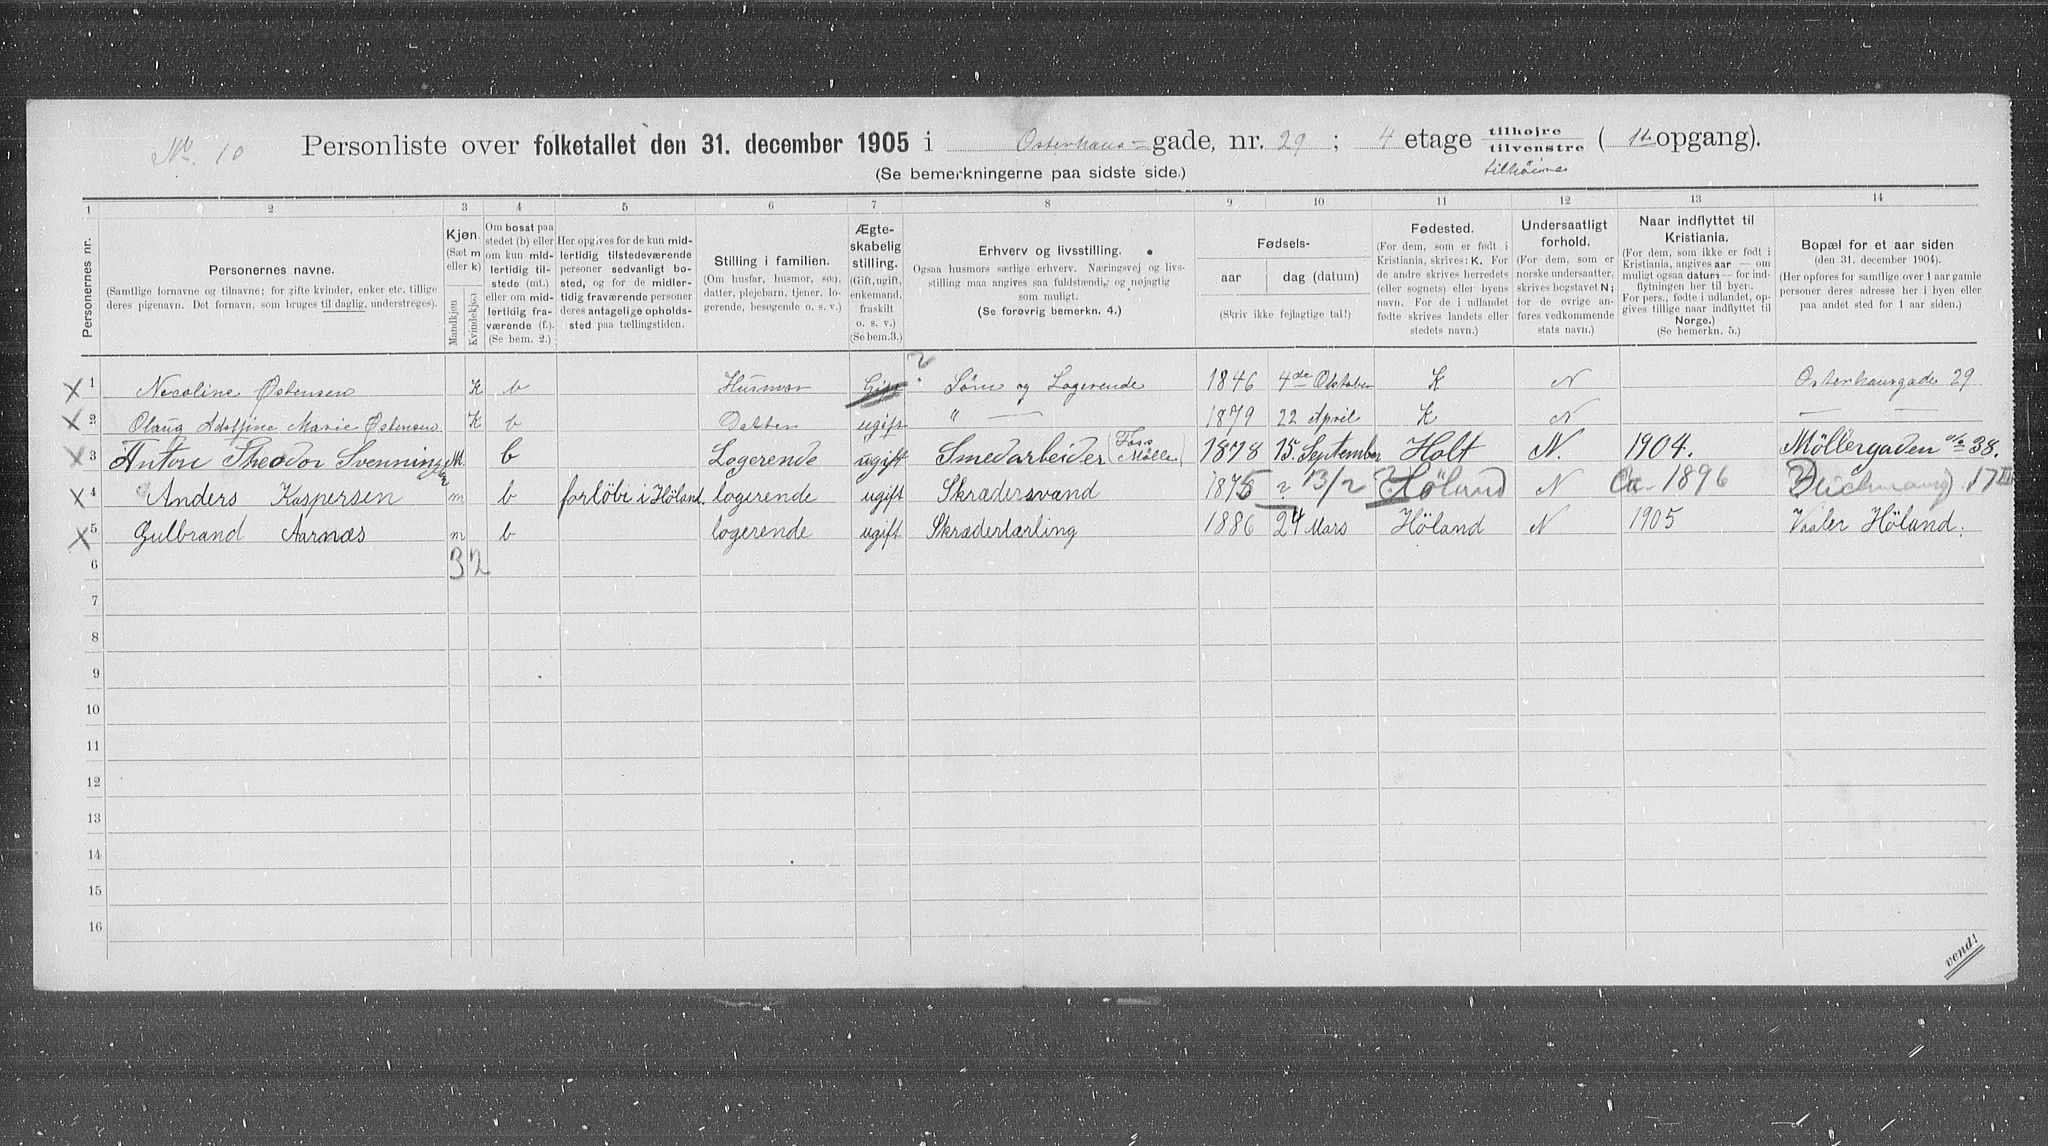 No. 10 Personliste over folketallet den 31. december 1905 i Osterhaus=gade, nr. 29; 4 etage tilhøjre tilvenstre (1ste opgang).
(Se bemerkningerne paa sidste side.) tilhöire
1 2 3 4 5 6 7 8 9 10 11 12 13 14
Personernes nr.
Personernes navne.
(Samtlige fornavne og tilnavne; for gifte kvinder, enker etc. tillige
deres pigenavn. Det fornavn, som bruges til daglig, understreges).
Kjøn.
(Sæt m
eller k)
Mandkjøn
Kvindekjøn
Om bosat paa
stedet (b) eller
om kun mid-
lertidig til-
stede (mt.)
eller om mid-
lertidig fra-
værende (f.).
(Se bem. 2.)
Her opgives for de kun mid-
lertidig tilstedeværende
personer sedvanligt bo-
sted, og for de midler-
tidig fraværende personer
deres antagelige opholds-
sted paa tællingstiden.
Stilling i familien.
(Om husfar, husmor, søn,
datter, plejebarn, tjener, lo-
gerende, besøgende o. s. v.)
Ægte-
skabelig
stilling.
(Gift, ugift,
enkemand,
fraskilt
o. s. v.)
(Se bem. 3.)
Erhverv og livsstilling.
Ogsaa husmors særlige erhverv. Næringsvej og livs-
stilling maa angives saa fuldstændig og nøjagtig
som muligt.
(Se forøvrig bemerkn. 4.)
Fødsels-
aar dag (datum)
(Skriv ikke fejlagtige tal!)
Fødested.
(For dem, som er født i
Kristiania, skrives: K. For
de andre skrives herredets
(eller sognets) eller byens
navn. For de i udlandet
fødte skrives landets eller
stedets navn.)
Undersaatligt
forhold.
(For dem, som er
norske undersaatter,
skrives bogstavet N;
for de øvrige an-
føres vedkommende
stats navn.)
Naar indflyttet til
Kristiania.
(For dem, som ikke er født i
Kristiania, angives aar — om
muligt ogsaa datum — for ind-
flytningen her til byen.
For pers., fødte i udlandet, op-
gives tillige naar indflyttet til
Norge.)
(Se bemerkn. 5.)
Bopæl for et aar siden
(den 31. december 1904).
(Her opføres for samtlige over 1 aar gamle
personer deres adresse her i byen eller
paa andet sted for 1 aar siden.)
X 1 Nicoline Østensen K b Husmor Gift ? Söm og Logerende 1846 4de Oktober K N Osterhausgade 29
X 2 Olaug Adolfine Marie Østensen K b Datter ugift " — 1879 22 April K N — —
X 3 Anton Theodor Svenningsen M. b Logerende ugift Smedarbeider 1878 15. September Holt N. 1904. Möllergaden No 38.
X 4 Anders Kaspersen m b forlöbi i Höland. logerende ugift Skrædersvend 1875 ? 13/2 ? Höland N Ca. 1896 17 III
X 5 Gulbrand Aarnæs m b logerende ugift Skræderlærling 1886 24 Mars Höland N 1905 Vaaler Höland.
6 3 2
7
8
9
10
11
12
13
14
15
16
vend!